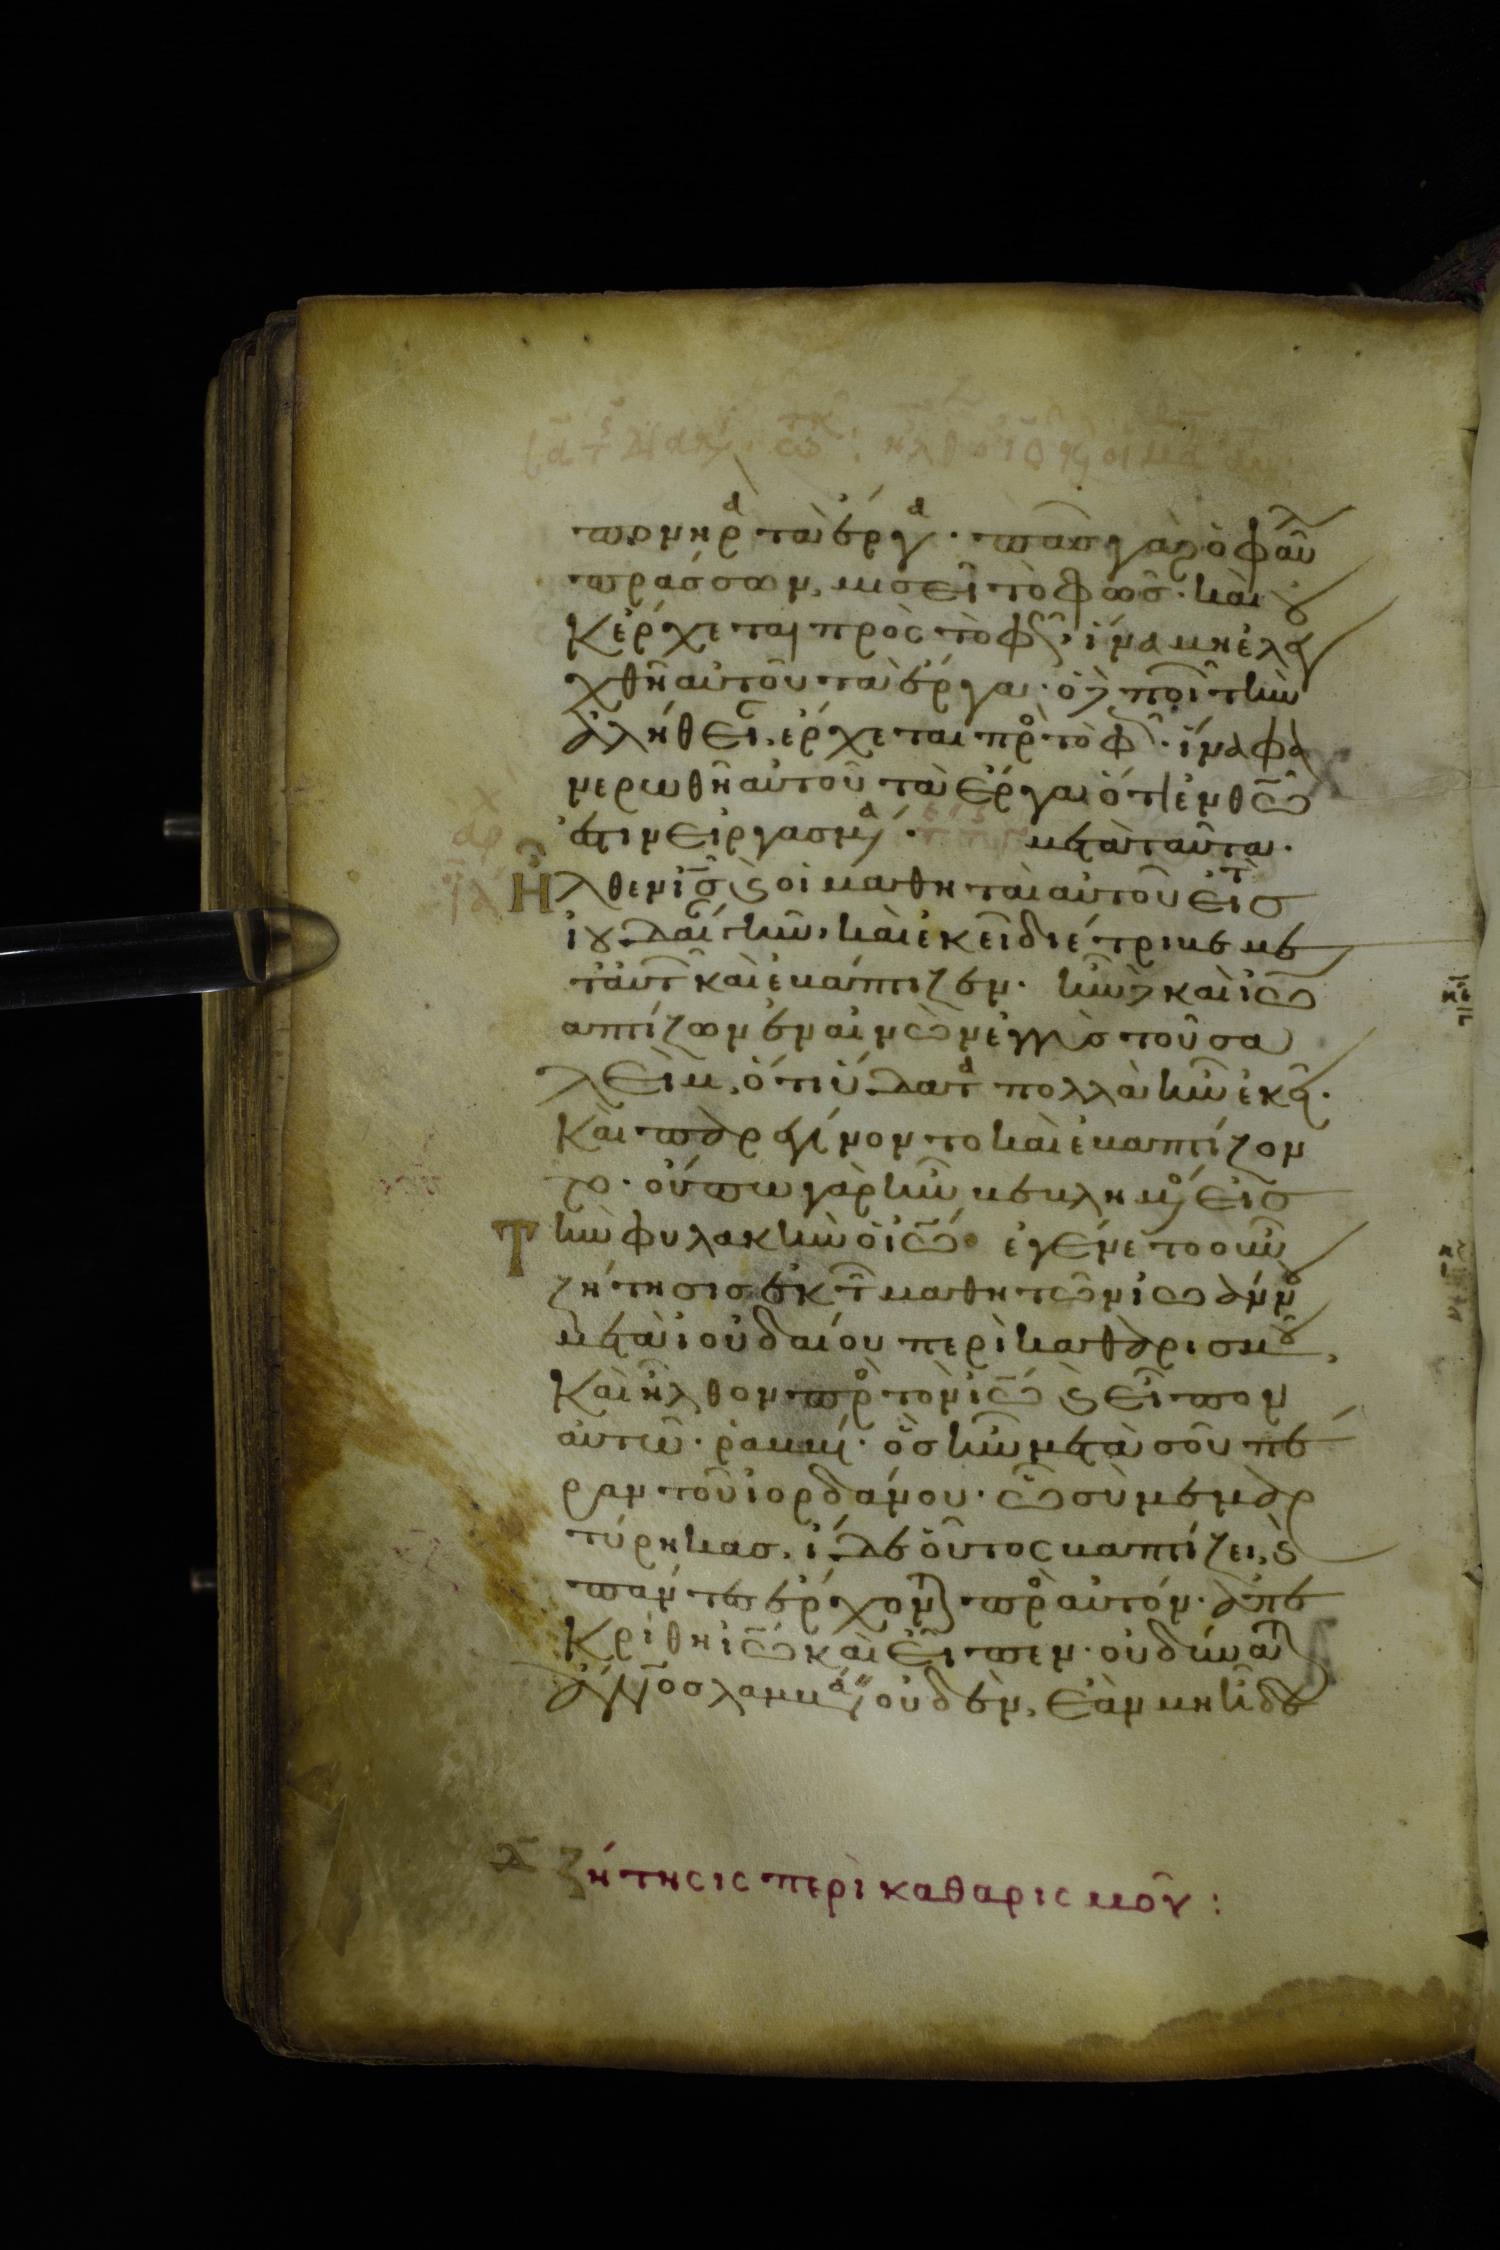 πονηρ̣ὰ τὰ ἔργα · πᾶς γὰρ ὁ φαῦλ
πράσσων, μισεῖ τὸ φῶς · καὶ οὐ
κ ἔρχεται πρὸς τὸ φῶς, ἵνα μὴ ἐλεγ
χθῆ αὐτοῦ τὰ ἔργα · ὁ δὲ ποιῶν τὴν
ἀλήθειαν, ἔρχεται πρὸς τὸ φῶς · ἵνα φα
νερωθῆ αὐτοῦ τὰ ἔργα ὅτι ἐν θω
ἐστιν εἰργασμένα · μετὰ ταῦτα ·
Ἦλθεν ὁ ις καὶ οἱ μαθηταὶ αὐτοῦ εἰς τὴν
ἰουδαίαν γῆν, καὶ ἐκεῖ διέτριβε με
τ αὐτῶν καὶ ἐβάπτιζεν · ἦν δὲ καὶ ἰω
βαπτίζων ἐν αἰνὼν ἐγγὺς τοῦ σα
λεὶμ, ὅτι ὕδατα πολλὰ ἦν ἐκεῖ ·
καὶ παρεγίνοντο καὶ ἐβαπτίζον
το · οὔπω γὰρ ἦν βεβλημένος εἰς
τὴν φυλακὴν ὁ ἰω · ἐγένετο οὖν
ζήτησις ἐκ τῶν μαθητῶν ἰωάννου
μετὰ ἰουδαίου περὶ καθαρισμοῦ,
καὶ ἦλθον πρὸς τὸν ἰω καὶ εἶπον
αὐτῶ · ῥαββί · ὃς ἦν μετὰ σοῦ πέ
ραν τοῦ ἰορδάνου · ὧ σὺ μεμαρ
τύρηκας, ἴδε οὗτος βαπτίζει, καὶ
πάντες ἔρχονται πρὸς αὐτόν · ἀπε
κρίθη ἰω καὶ εἶπεν · οὐ δύναται
ἄνος λαμβάνειν οὐδὲν, ἐὰν μὴ ἦ δε
λ ζήτησις περὶ καθαρισμοῦ :